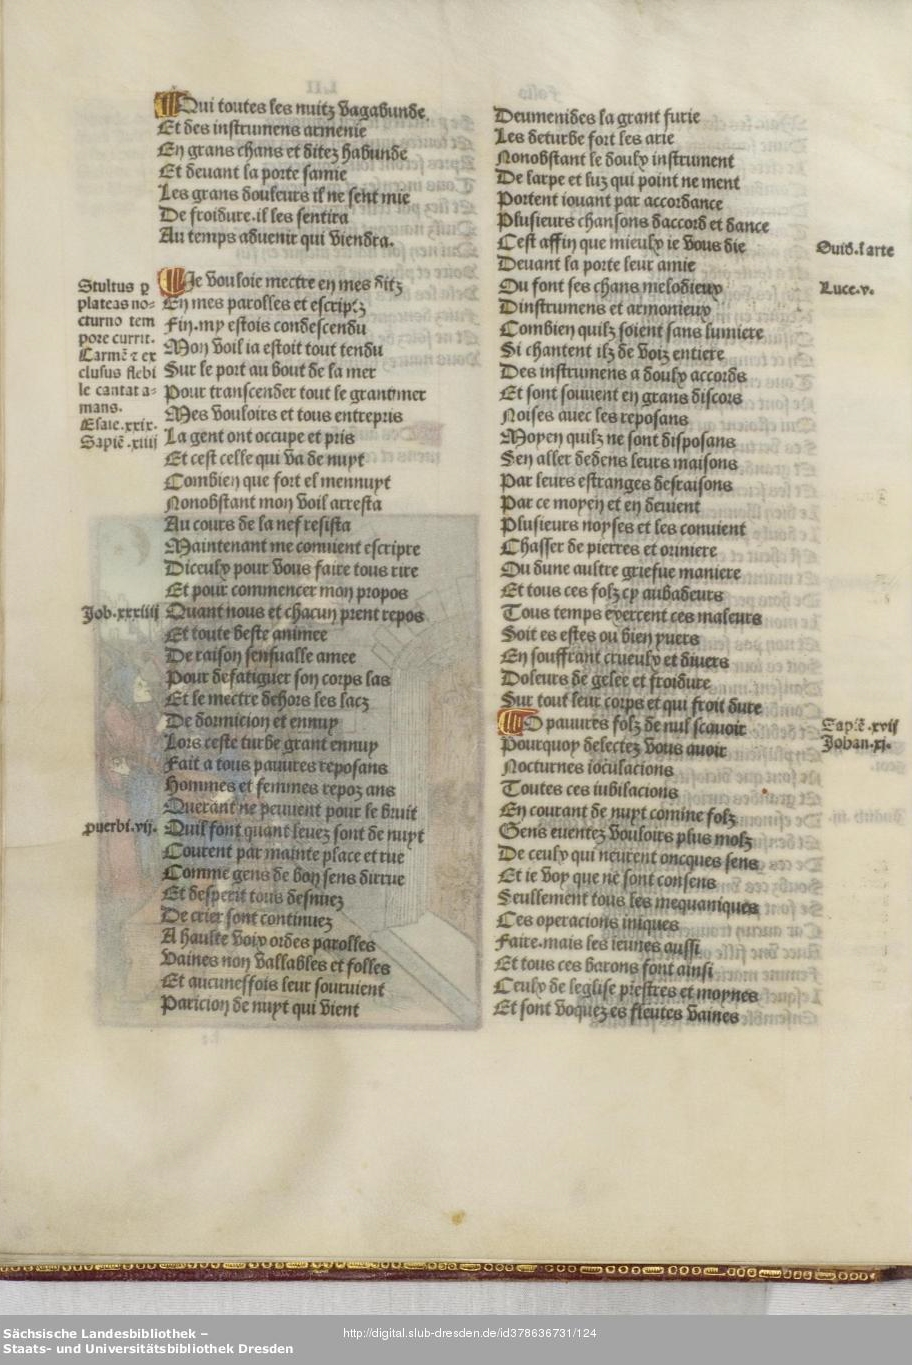 Qui toutes les nuitz vagabunde
Et des instrumens armenie
En grans chans et ditez habunde
Et deuant la porte samie
Les grans douleurs il ne sent mie
De froidure.il les sentira
Au temps aduenir qui viendra.
Stultus p
plateas no-
cturno tem
pore currit.
Carmē ⁊ ex
clusus flebi
le cantat a-
mans.
Esaie.xxix.
Sapiē.xiiii
Je vouloie mectre en mes ditz
En mes parolles et escriptz
Fin.my estois condescendu
Mon voil ia estoit tout tendu
Sur le port au bout de la mer
Pour transcender tout le grant mer
Mes vouloirs et tous entrepris
La gent ont occupe et pris
Et cest celle qui va de nuyt
Combien que fort el mennuyt
Nonobstant mon voil arresta
Au cours de la nef resista
Maintenant me conuient escripre
Diceulx pour vous faire tous rire
Et pour commencer mon propos
Job.xxxiiii
Quant nous et chacun prent repos
Et toute beste animee
De raison sensualle amee
Pour defatiguer son corps las
Et le mectre dehors les lacz
De dormicion et ennuy
Lors ceste turbe grant ennuy
Fait a tous pauures reposans
Hommes et femmes repoz ans
Querant ne peuuent pour le bruit
puerbi.vij.
Quil font quant leuez sont de nuyt
Courent par mainte place et rue
Comme gens de bon sens dirrue
Et desperit tous desnuez
De crier sont continuez
A haulte voix ordes parolles
Vaines non vallables et folles
Et aucuneffois leur souruient
Paricion de nuyt qui vient
Deumenides la grant furie
Les deturbe fort les arie
Nonobstant le doulx instrument
De larpe et luz qui point ne ment
Portent iouant par accordance
Plusieurs chansons daccord et dance
Cest affin que mieulx ie vous die
Ouid.l arte
Deuant la porte leur amie
Ou font ses chans melodieux
Luce.v.
Dinstrumens et armonieux
Combien quilz soient sans lumiere
Si chantent ilz de voiz entiere
Des instrumens a doulx accords
Et sont souuent en grans discors
Noises auec les reposans
Moyen quilz ne sont disposans
Sen aller dedens leurs maisons
Par leurs estranges desraisons
Par ce moyen et en deuient
Plusieurs noyses et les conuient
Chasser de pierres et oriniere
Ou dune aultre griefue maniere
Et tous ces folz cy aubadeurs
Tous temps exercent ces maleurs
Soit es estes ou bien yuers
En souffrant crueulx et diuers
Doleurs de gelee et froidure
Sur tout leur corps et qui froit dure
O pauures folz de nul scauoir
Sapiē.xvii
Pourquoy delectez vous auoir
Johan.xj.
Nocturnes ioculacions
Toutes ces iubilacions
En courant de nuyt comme folz
Gens euentez vouloirs plus molz
De ceulx qui neurent oncques sens
Et ie voy que ne sont consens
Seullement tous les mequaniques
Ces operacions iniques
Faire.mais les ieunes aussi
Et tous ces barons font ainsi
Ceulx de leglise prestres et moynes
Et sont voquez es fleutes vaines
Sächsische Landesbibliothek –
Staats- und Universitätsbibliothek Dresden
http://digital.slub-dresden.de/id378636731/124